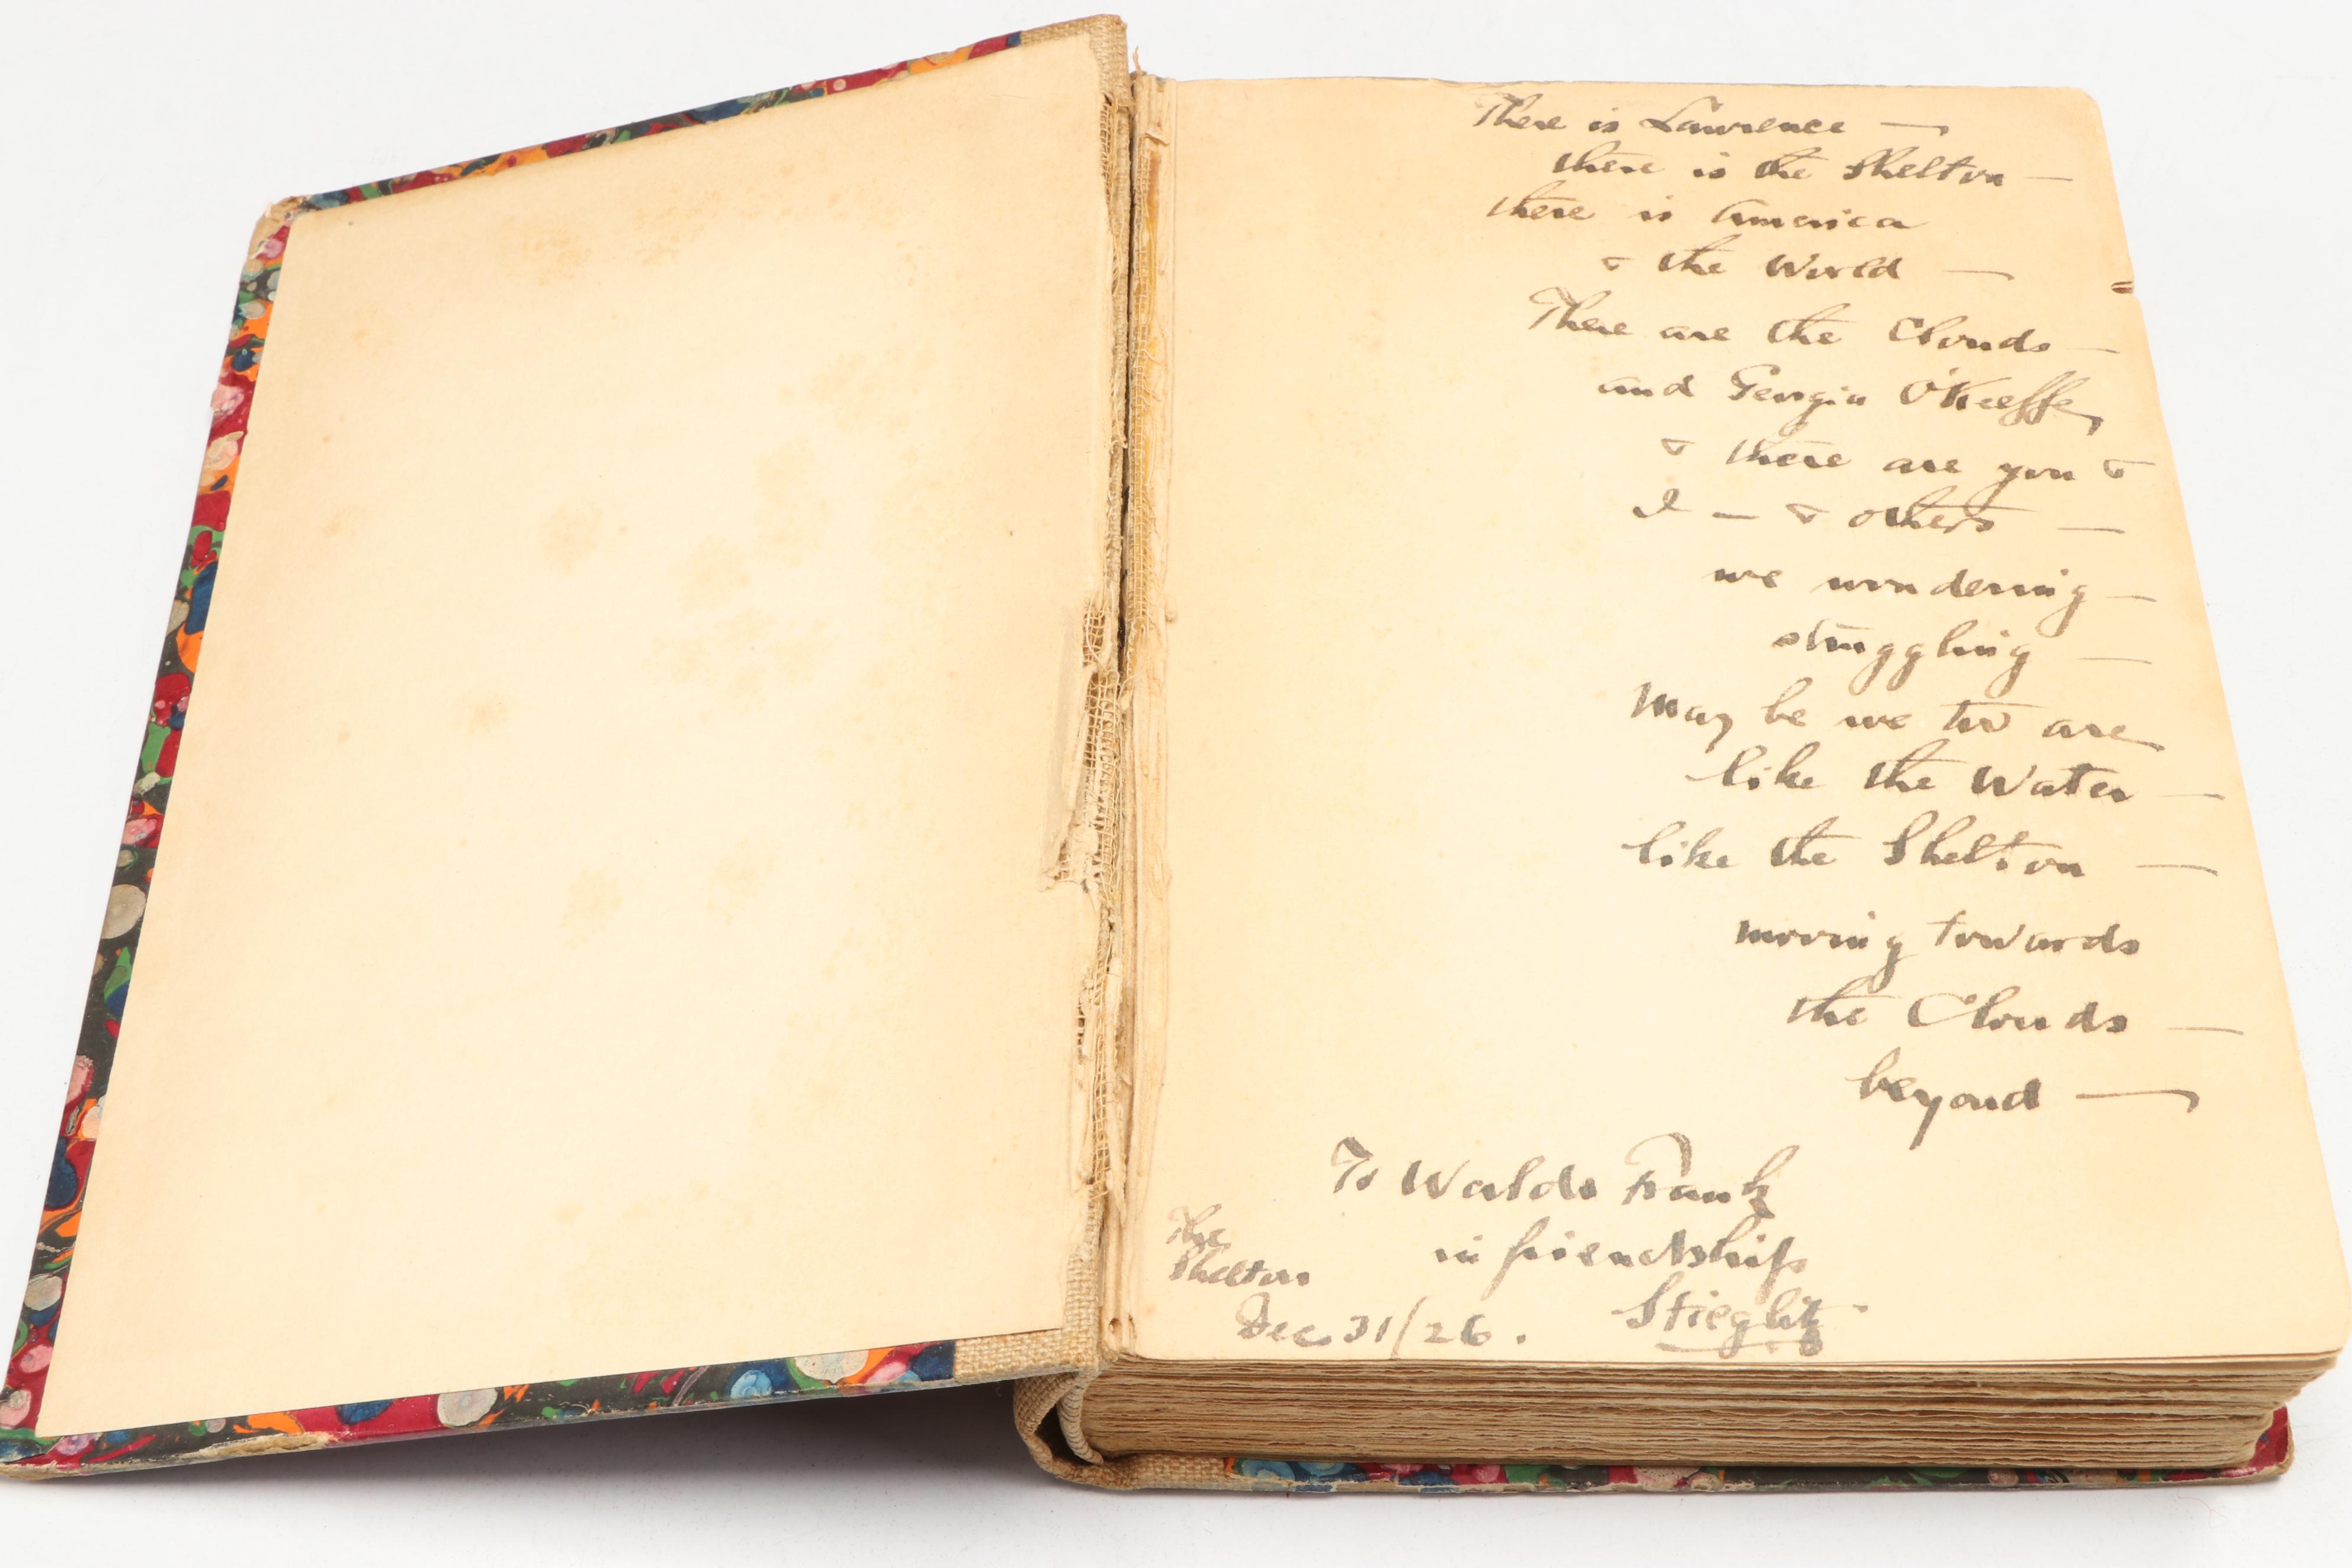 There is Lawrence —
there is the Shelton —
there is America
& the World —
There are the Clouds —
and Georgia O'Keeffe,
& there are you &
I — & others —
we wondering —
struggling —
May be we two are
like the Water —
like the Shelton —
moving towards
the Clouds —
beyond —
To Waldo Frank
in friendship
Stieglitz
The
Shelton
Dec. 31/26.